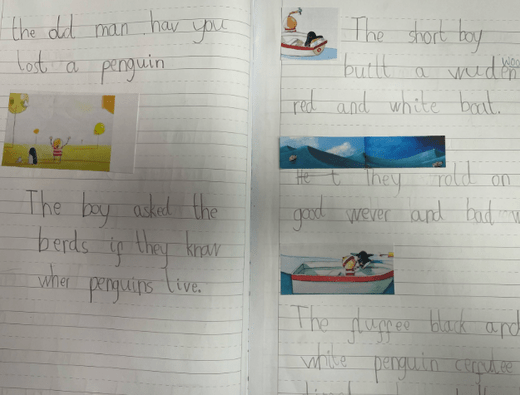 the old man hav you
lost a penguin
The boy asked the
berds if they know
wher penguins live.
The short boy
built a wuden
red and white boat.
They rold on
good wever and bad w
The fluffee black and
white penguin cerfulee